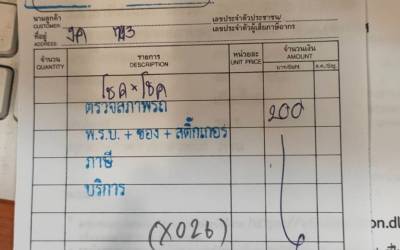 นามลูกค้า
CUSTOMER
เลขประจำตัวประชาชน/
เลขประจำตัวผู้เสียภาษีอากร
ที่อยู่
ADDRESS
จำนวน
QUANTITY
รายการ
DESCRIPTION
หน่วยละ
UNIT PRICE
จำนวนเงิน
AMOUNT
บาท/Baht.
ส.ต./Stg.
ตรวจสภาพรถ
200
พ.ร.บ. + ซอง + สติ๊กเกอร์
ภาษี
บริการ
(X026)
on.dl